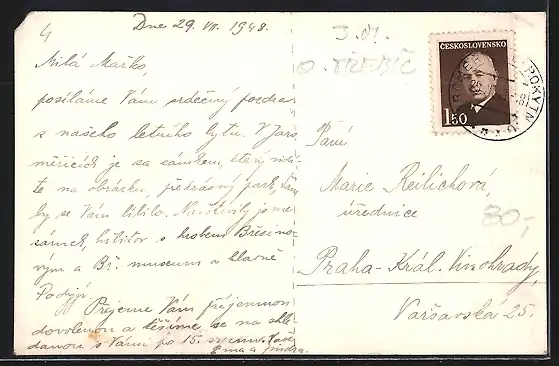 4
Dne 29. VII. 1948.
Milá Mařko,
posíláme Vám srdečný pozdrav
z našeho letního bytu. V Jaro
měřicích je za zámkem, který vidí-
te na obrázku, překrásný park, tam
by se Vám líbilo. Navštívily jsme
zámek, hřbitov s hrobem Březino-
vým a Bř. museum a hlavně
Podyjí.
Přejeme Vám příjemnou
dovolenou a těšíme se na shle-
danou s Vámi po 15. srpnu.
a
O. TŘEBÍČ
ČESKOSLOVENSKO
1.50
POKYTN
Paní
Marie Reilichová,
úřednice
80,-
Praha - Král. Vinohrady,
Varšavská 25.